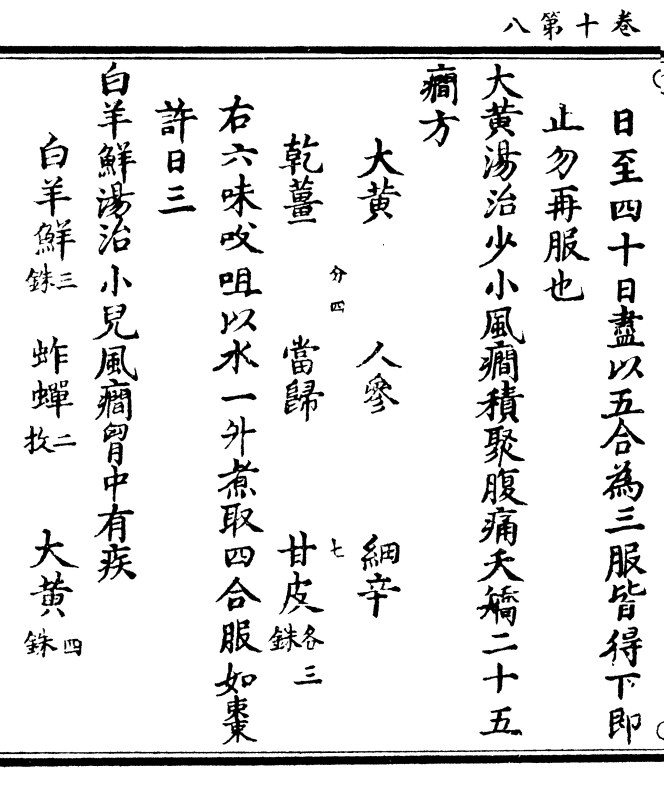 卷十第八
日至四十日盡以五合為三服皆得下即
止勿再服也
大黃湯治少小風癎積聚腹痛夭矯二十五
癎方
大黃　人參　細辛
四分　七
乾薑　當歸　甘皮各三銖
右六味㕮咀以水一升煮取四合服如棗
許日三
白羊鮮湯治小兒風癎胷中有疾
白羊鮮三銖　蚱蟬二枚　大黃四銖